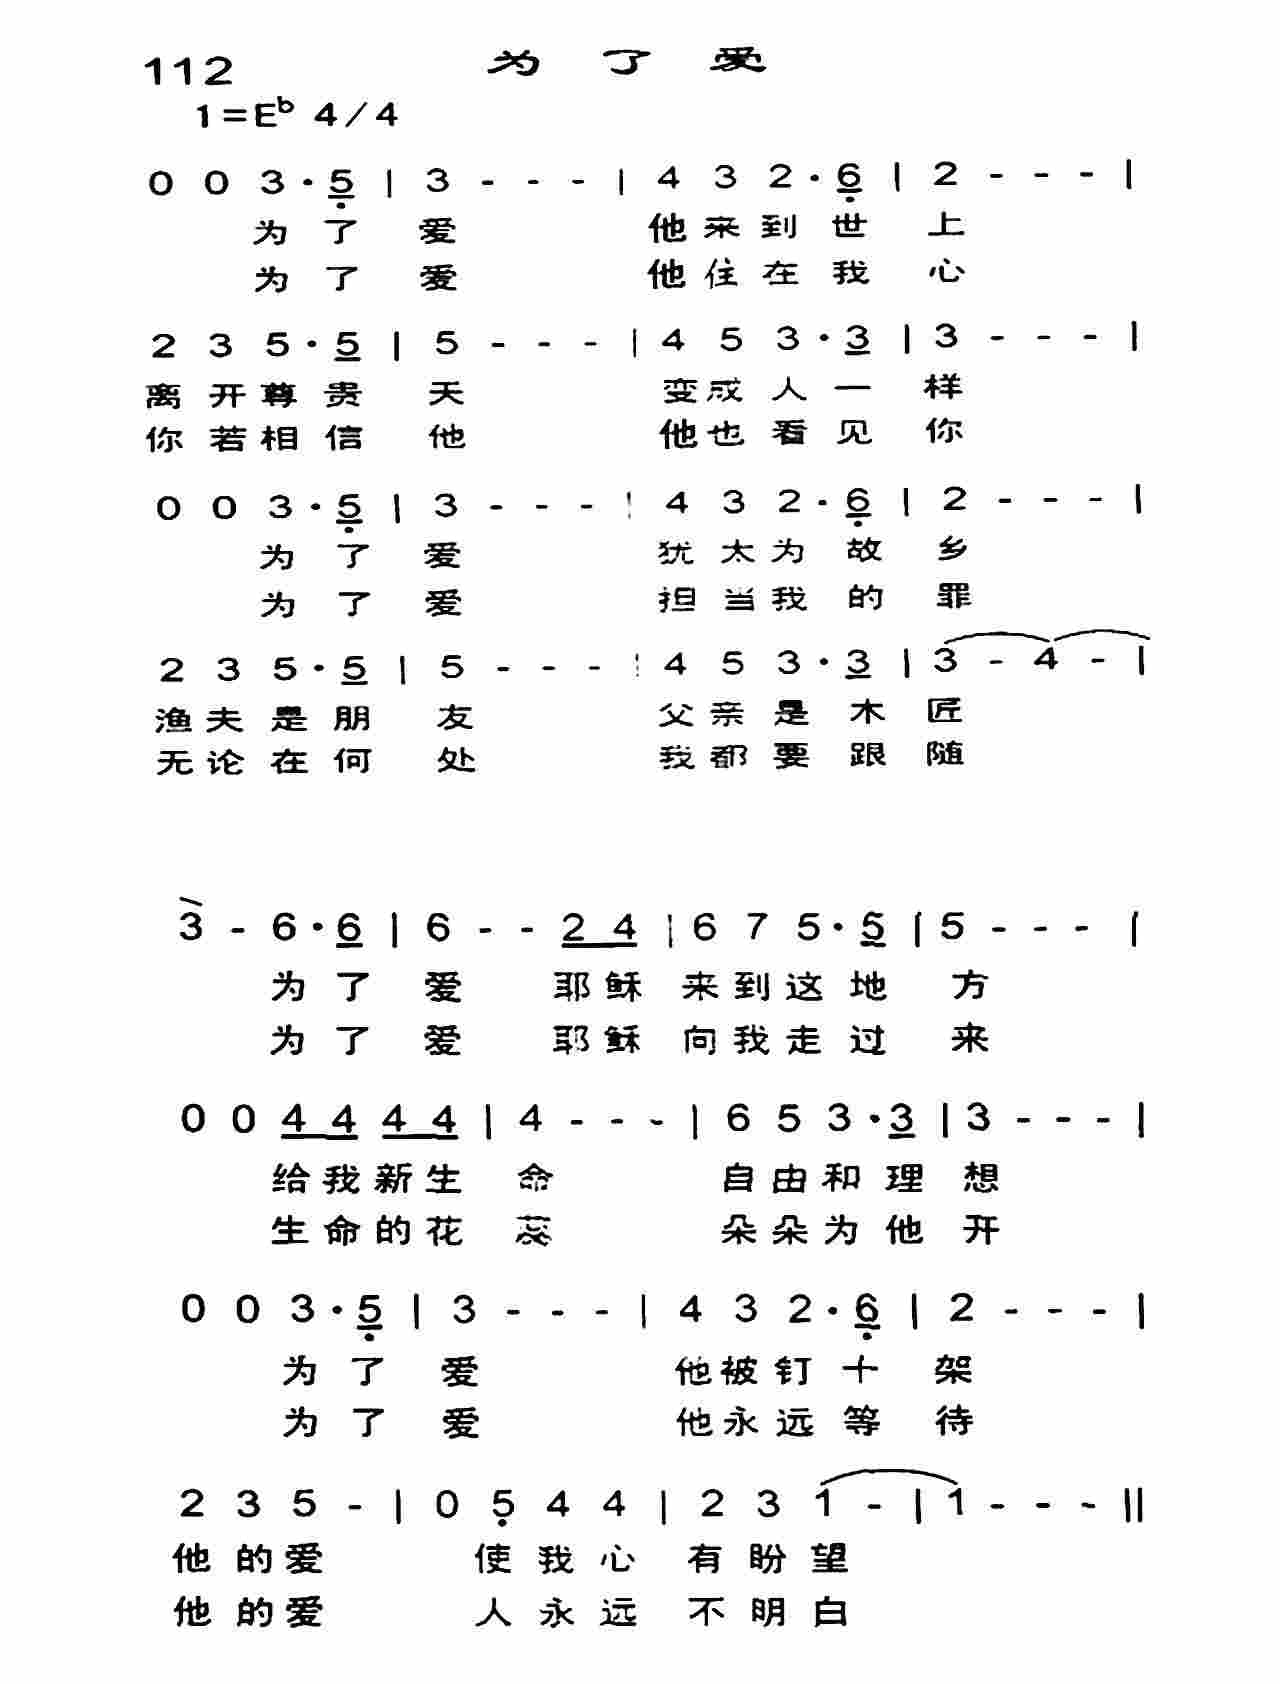 112 为了爱
1=E♭ 4/4
0 0 3·5 | 3 - - - | 4 3 2·6 | 2 - - - |
为了爱 他来到世上
为了爱 他住在我心
2 3 5·5 | 5 - - - | 4 5 3·3 | 3 - - - |
离开尊贵天 变成人一样
你若相信他 他也看见你
0 0 3·5 | 3 - - - | 4 3 2·6 | 2 - - - |
为了爱 犹太为故乡
为了爱 担当我的罪
2 3 5·5 | 5 - - - | 4 5 3·3 | 3 - 4 - |
渔夫是朋友 父亲是木匠
无论在何处 我都要跟随
3 - 6·6 | 6 - - 2 4 | 6 7 5·5 | 5 - - - |
为了爱 耶稣来到这地方
为了爱 耶稣向我走过来
0 0 4 4 4 4 | 4 - - - | 6 5 3·3 | 3 - - - |
给我新生命 自由和理想
生命的花蕊 朵朵为他开
0 0 3·5 | 3 - - - | 4 3 2·6 | 2 - - - |
为了爱 他被钉十架
为了爱 他永远等待
2 3 5 - | 0 5 4 4 | 2 3 1 - | 1 - - - ||
他的爱 使我心有盼望
他的爱 人永远不明白